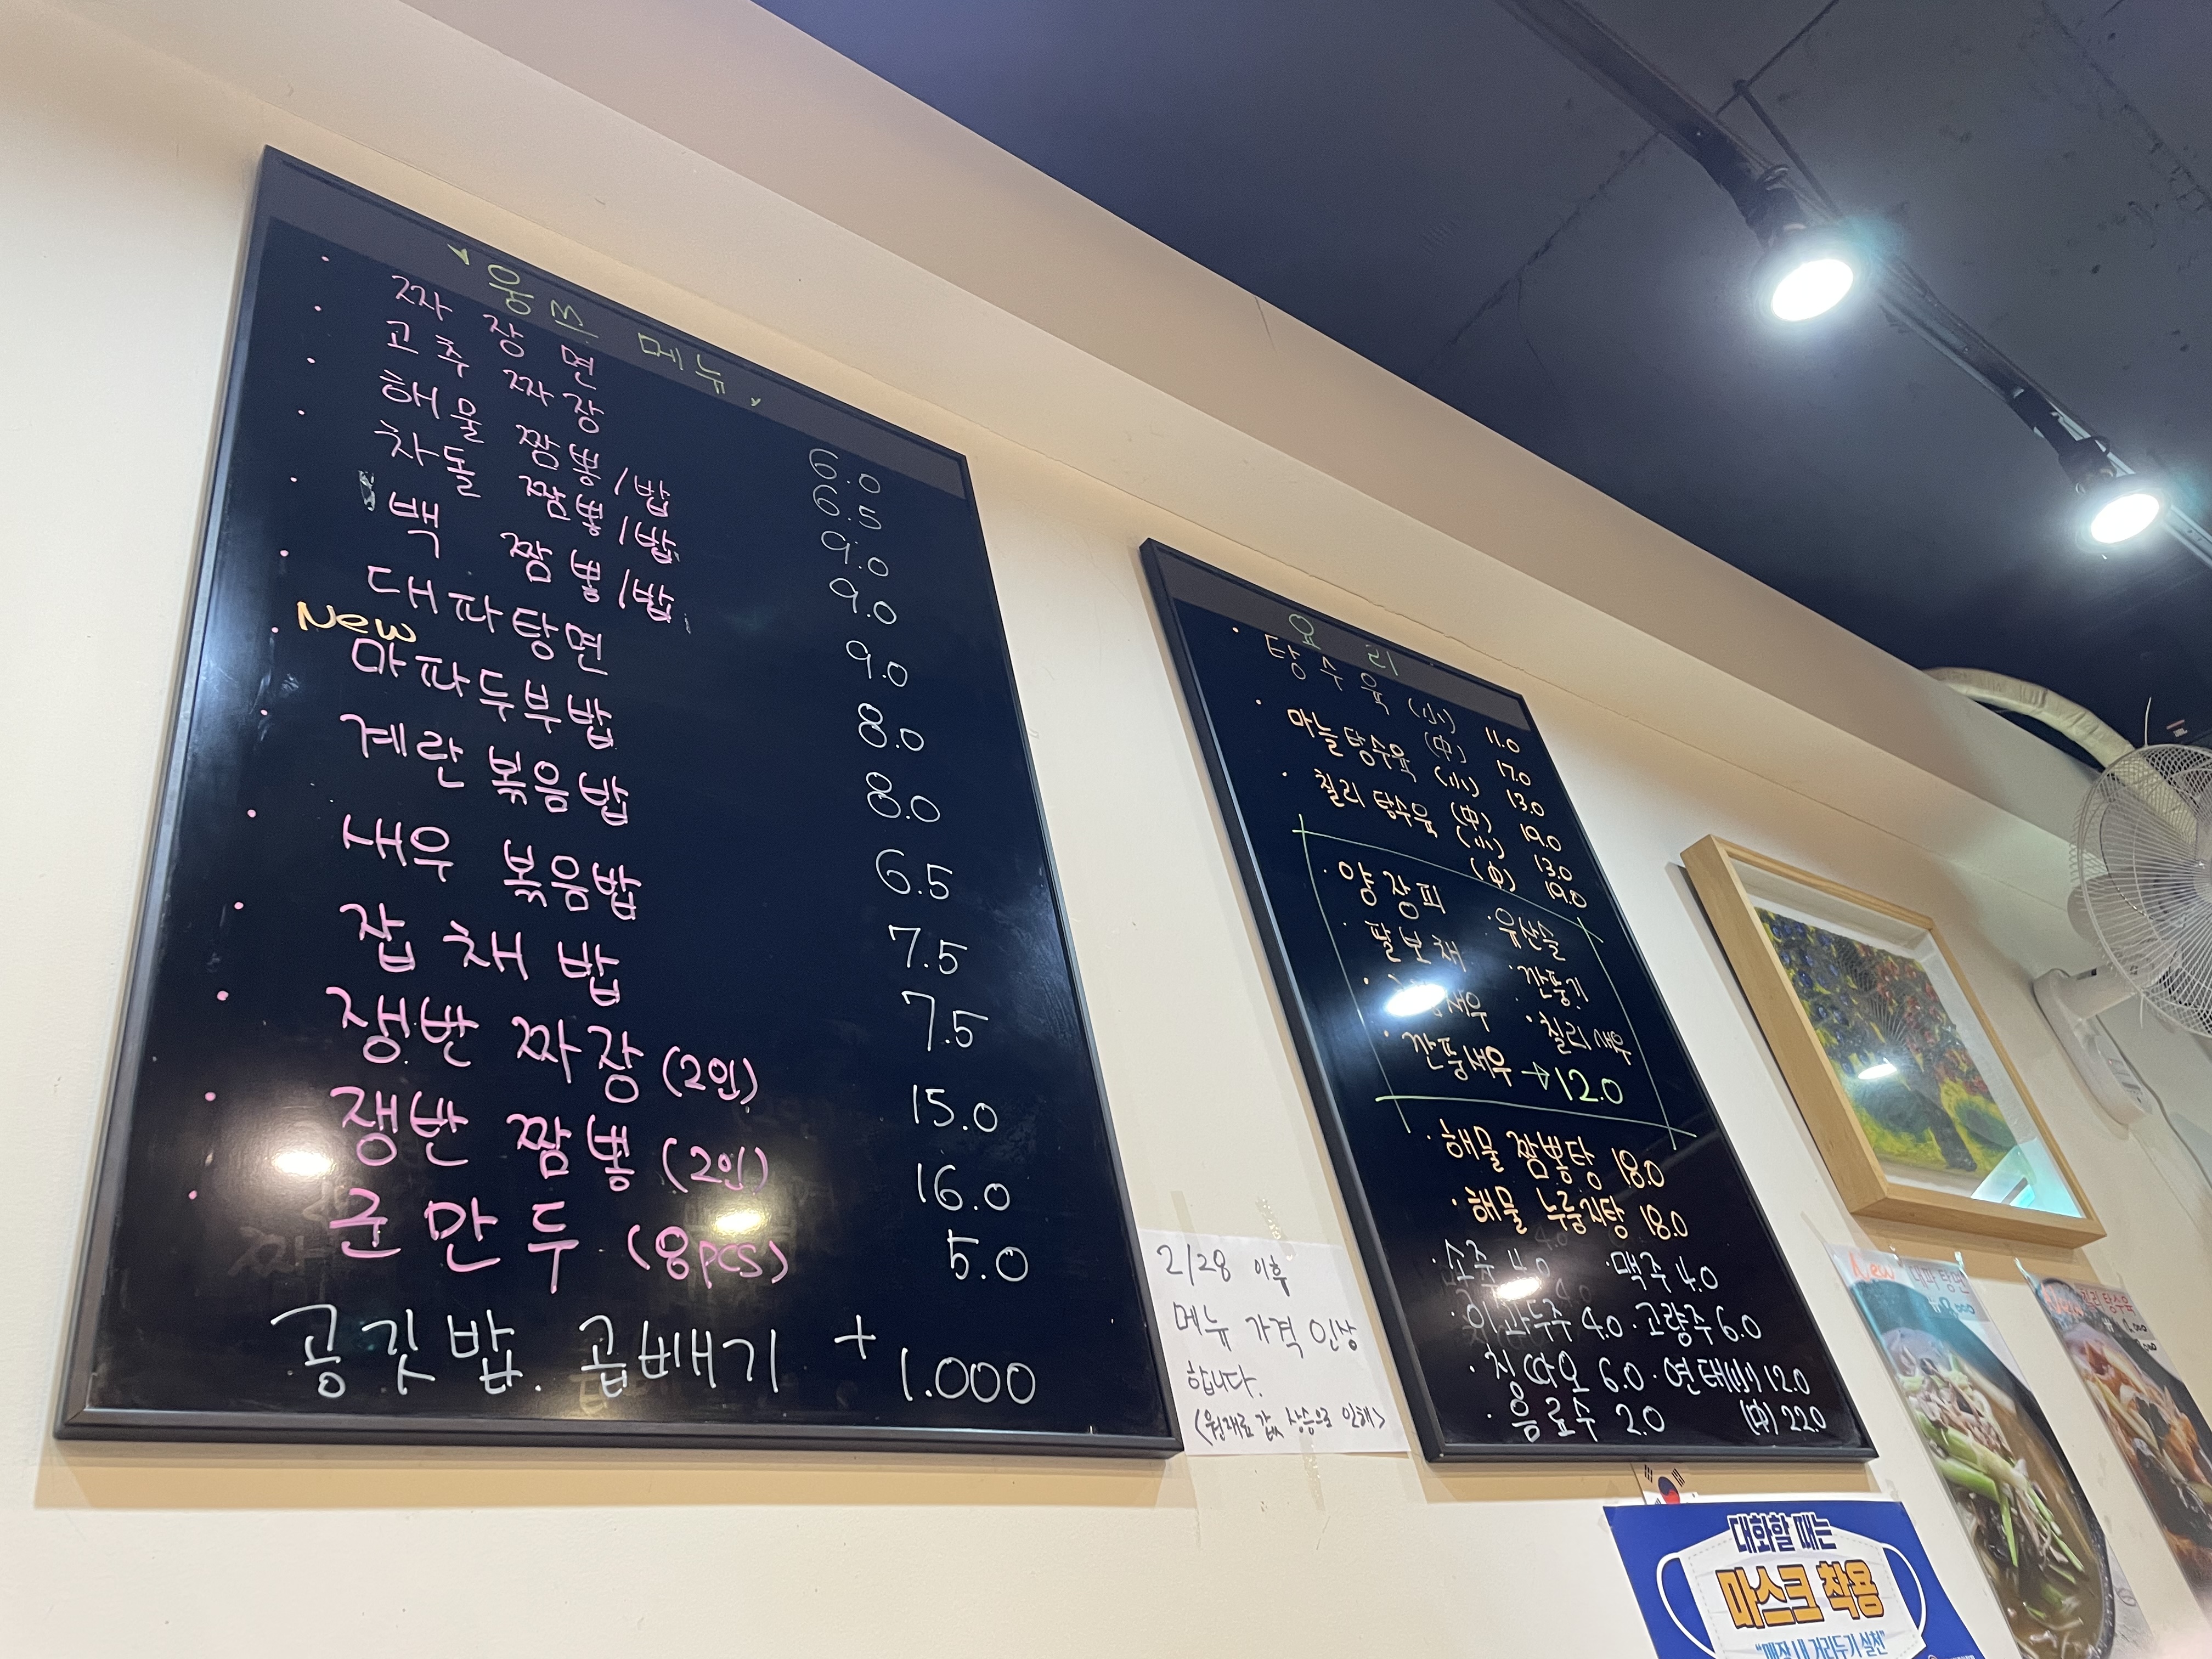 웅쓰 메뉴
짜장면 6.0
고추 짜장 6.5
해물 짬뽕/밥 9.0
차돌 짬뽕/밥 9.0
백 짬뽕/밥 9.0
대파탕면 8.0
New
마파두부밥 8.0
계란 볶음밥 6.5
새우 볶음밥 7.5
잡채밥 7.5
쟁반 짜장 (2인) 15.0
쟁반 짬뽕 (2인) 16.0
군만두 (8pcs) 5.0
공깃밥. 곱배기 + 1.000
요리
탕수육 (小) 11.0
(中) 17.0
마늘탕수육 (小) 13.0
(中) 19.0
칠리 탕수육 (小) 13.0
(中) 19.0
양장피 · 유산슬
팔보채 · 깐풍기
새우 · 칠리새우
깐풍새우 → 12.0
· 해물 짬뽕탕 18.0
· 해물 누룽지탕 18.0
· 소주 4.0 · 맥주 4.0
· 이과두주 4.0 · 고량주 6.0
· 칭따오 6.0 · 연태(小) 12.0
· 음료수 2.0 (中) 22.0
2/28 이후
메뉴 가격 인상
합니다.
<원재료 값 상승으로 인해>
New 대파탕면
대화할 때는
마스크 착용
"매장 내 거리두기 실천"